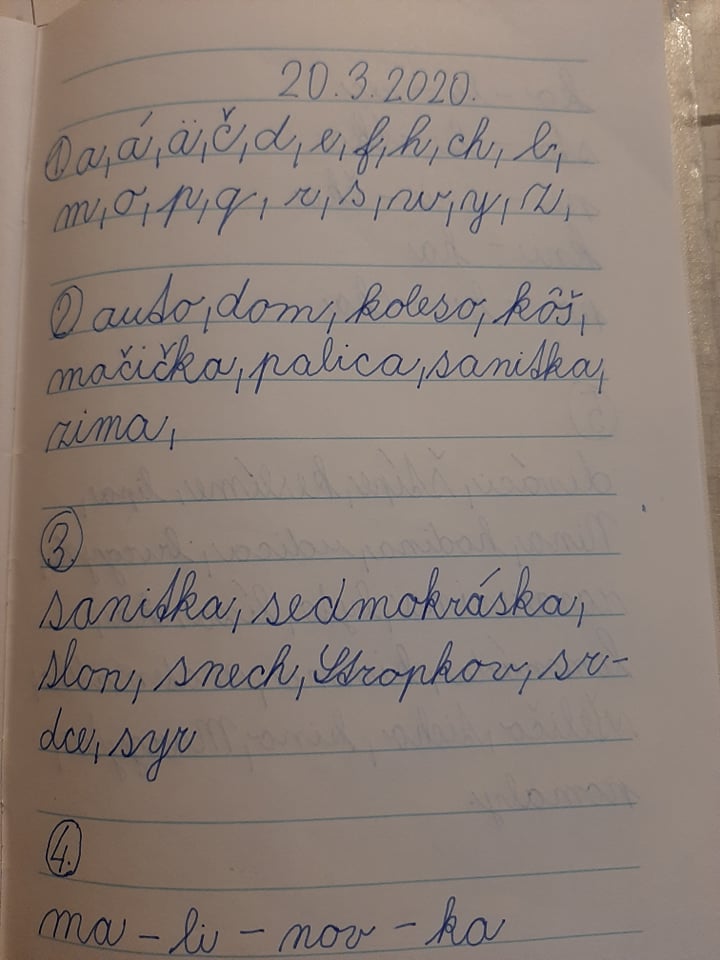 20.3.2020.
① a, á, ä, č, d, e, f, h, ch, l,
m, o, p, q, r, s, w, y, z,
② auto, dom, koleso, kôš,
mačička, palica, sanitka,
zima,
3.
sanitka, sedmokráska,
slon, snech, Stropkov, sr-
dce, syr
4.
ma - li - nov - ka